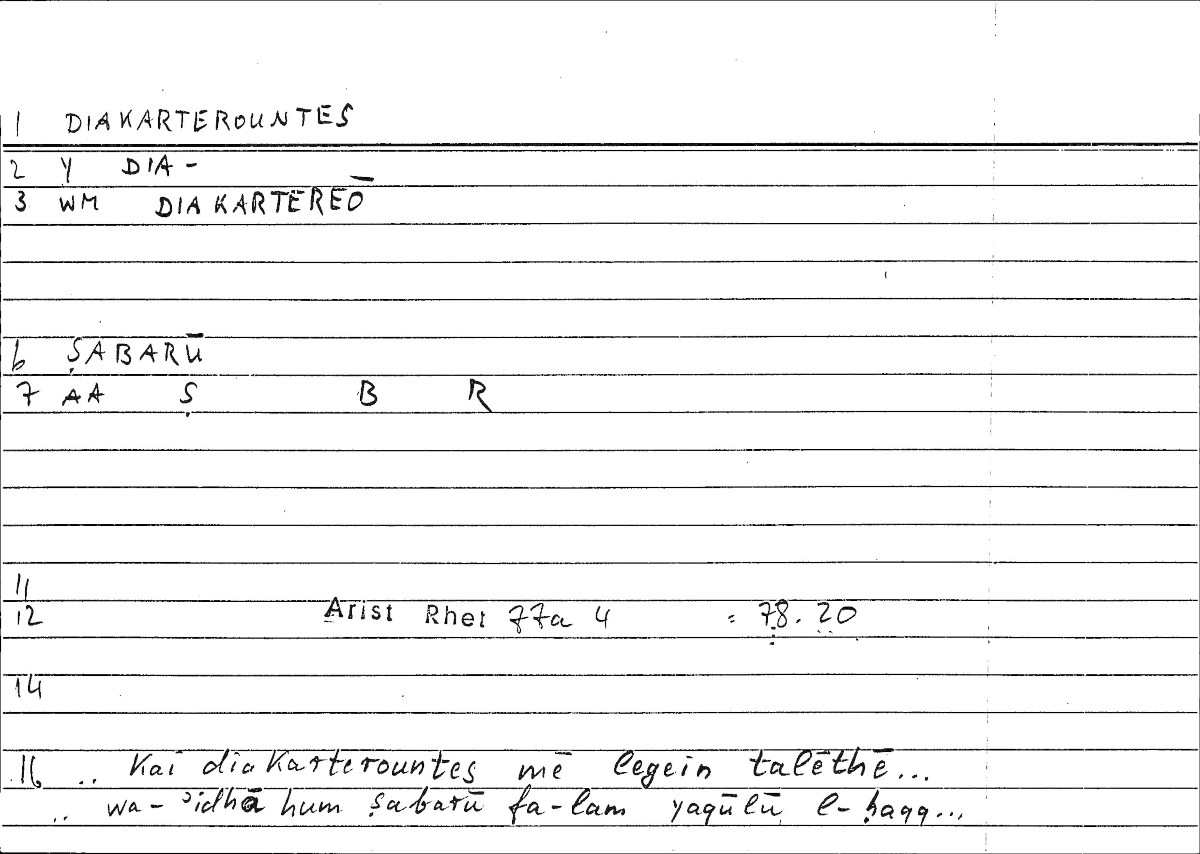 1 DIAKARTEROUNTES
2 Y DIA -
3 WM DIAKARTEREŌ
6 ṢABARŪ
7 AA Ṣ B R
11
12 Arist Rhet 77a 4 = 78.20
14
16 .. kai diakarterountes mē legein talēthē...
.. wa-ʾidhā hum ṣabarū fa-lam yaqūlū l-ḥaqq...